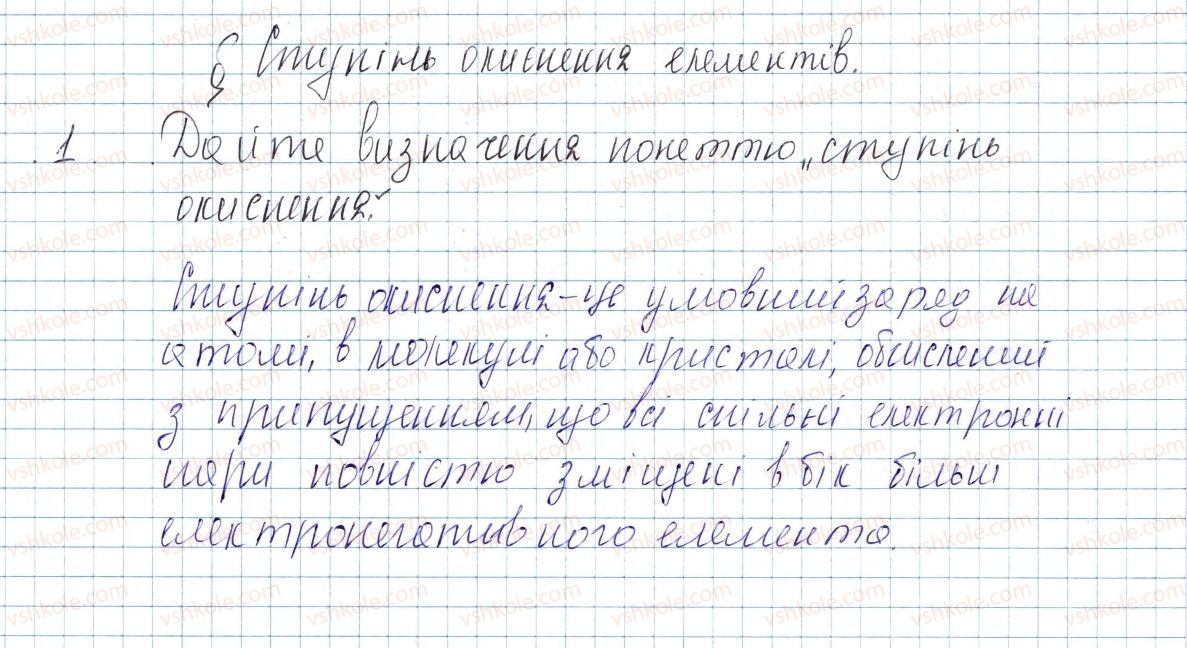 § Ступінь окиснення елементів.
1 Дайте визначення понеттю „ступінь
окиснення".
Ступінь окиснення – це умовний заряд на
атомі, в молекулі або кристалі, обчислений
з припущенням, що всі спільні електронні
пари повністю зміщені в бік більш
електронегативного елемента.